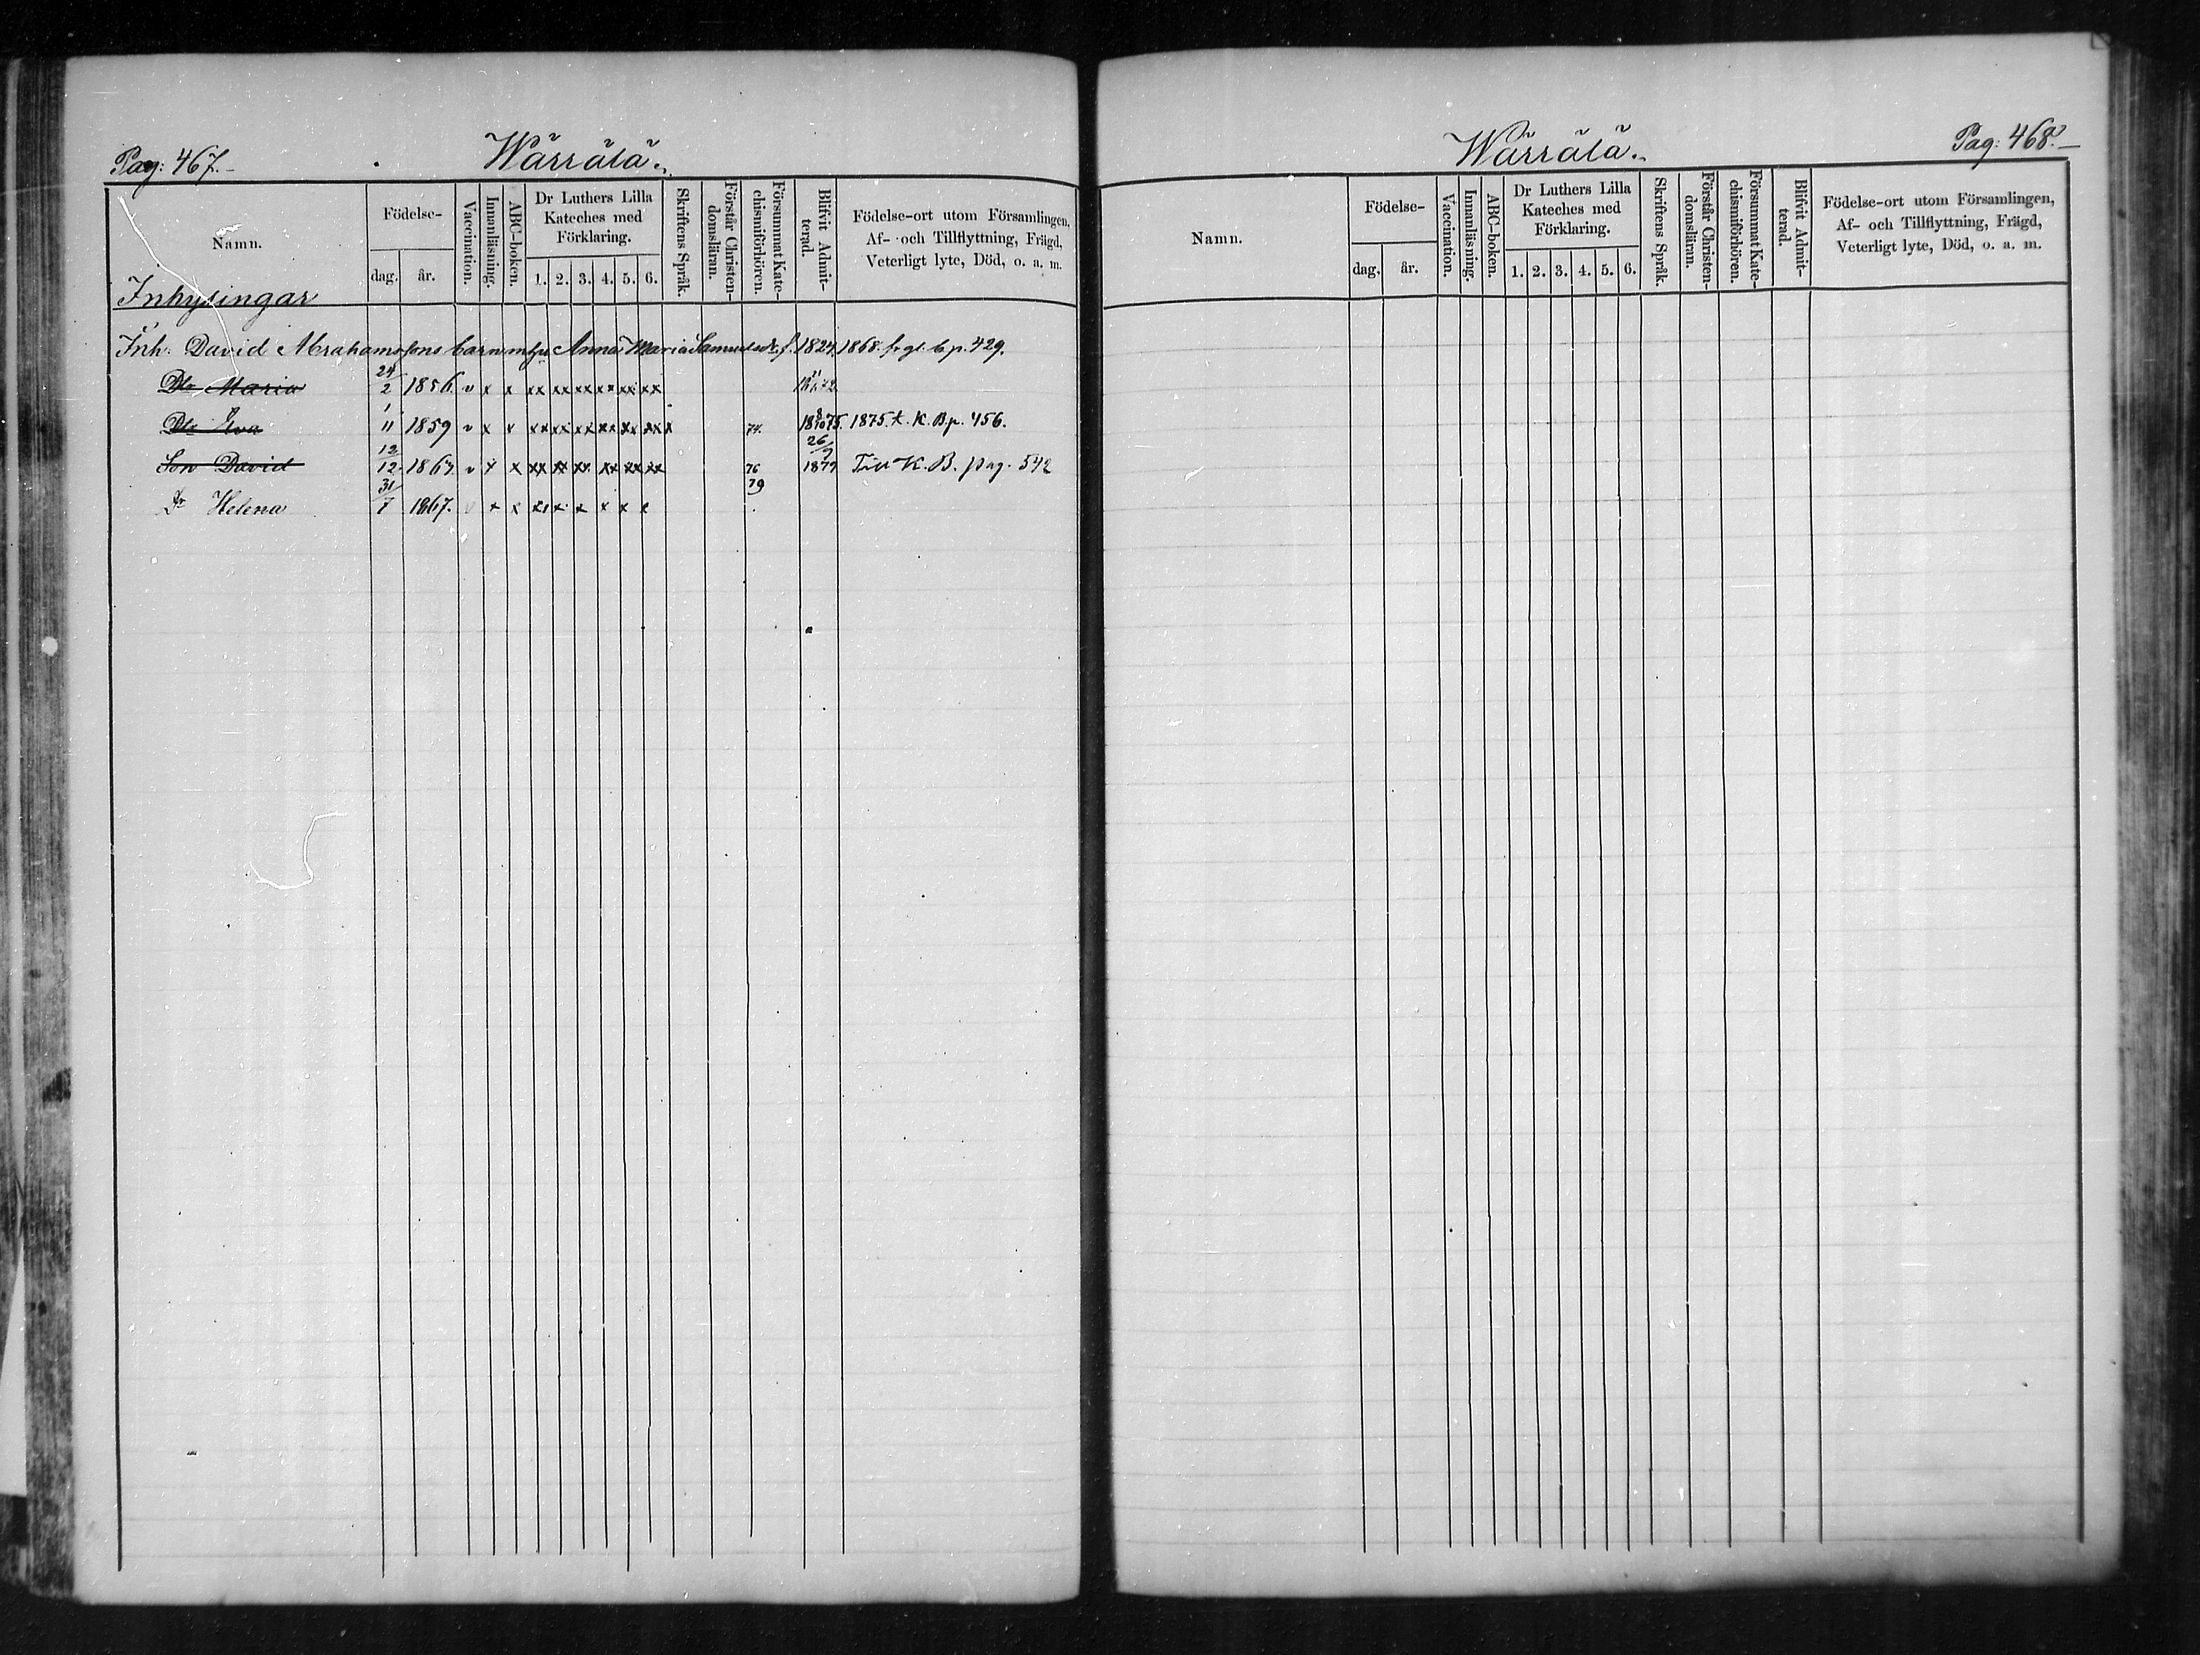 Pag: 467.
Wärrälä.
Namn.
Födelse-
dag. år.
Vaccination.
Innanläsning.
ABC-boken.
Dr Luthers Lilla
Kateches med
Förklaring.
1. 2. 3. 4. 5. 6.
Skriftens Språk.
Förstår Christen-
domsläran.
Försummat Kate-
chismiförhören.
Blifvit Admit-
terad.
Födelse-ort utom Församlingen,
Af- och Tillflyttning, Frägd,
Veterligt lyte, Död, o. a. m.
Inhysingar
Inh: David Abrahamssons barn m hu Anna Maria f. 1824. 1868 fr gl. b p. 429.
Dr Maria 24/2 1856. v x x xx xx xx xx xx xx
Dr Eva 1/11 1859 v x x xx xx xx xx xx xx x 74. 18 8/10 75. 1875. t. K. B p. 456.
Son David 12/12 v x x xx xx xx xx xx xx 76 79 26/9 Till K. B. pag. 542
Dr Helena 31/7 1867. v x x x x x x x
Wärrälä.
Pag: 468.
Namn.
Födelse-
dag. år.
Vaccination.
Innanläsning.
ABC-boken.
Dr Luthers Lilla
Kateches med
Förklaring.
1. 2. 3. 4. 5. 6.
Skriftens Språk.
Förstår Christen-
domsläran.
Försummat Kate-
chismiförhören.
Blifvit Admit-
terad.
Födelse-ort utom Församlingen,
Af- och Tillflyttning, Frägd,
Veterligt lyte, Död, o. a. m.